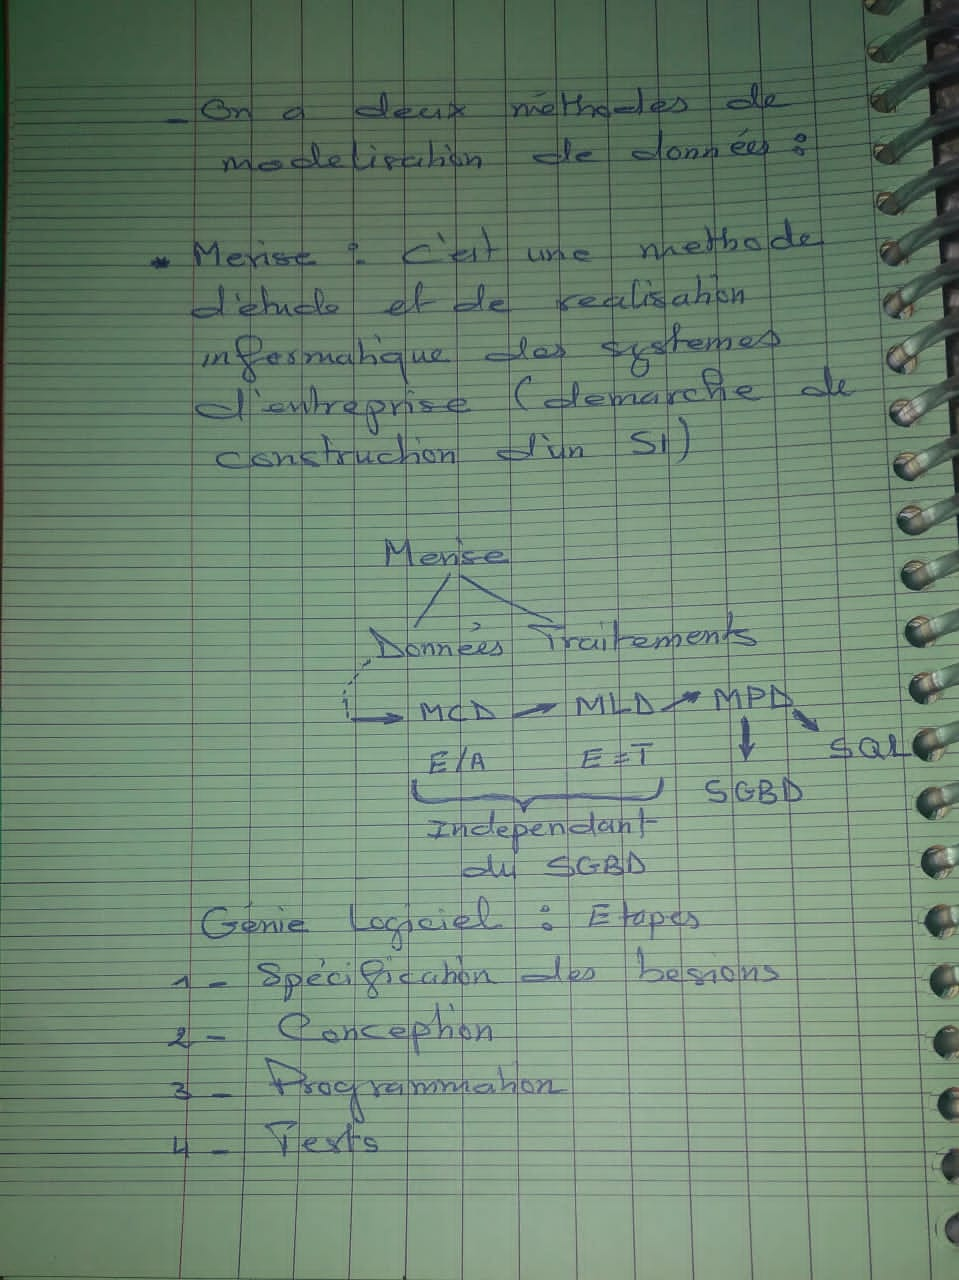 - On a deux méthodes de
modelisation de données :
* Merise : c'est une methode
d'etude et de realisation
informatique des systemes
d'entreprise (demarche de
construction d'un SI)
Merise
Données Traitements
MCD → MLD → MPD
E/A E=T SQL
SGBD
Independant
du SGBD
Génie Logiciel : Etapes
1 - Spécification des besions
2 - Conception
3 - Programmation
4 - Tests